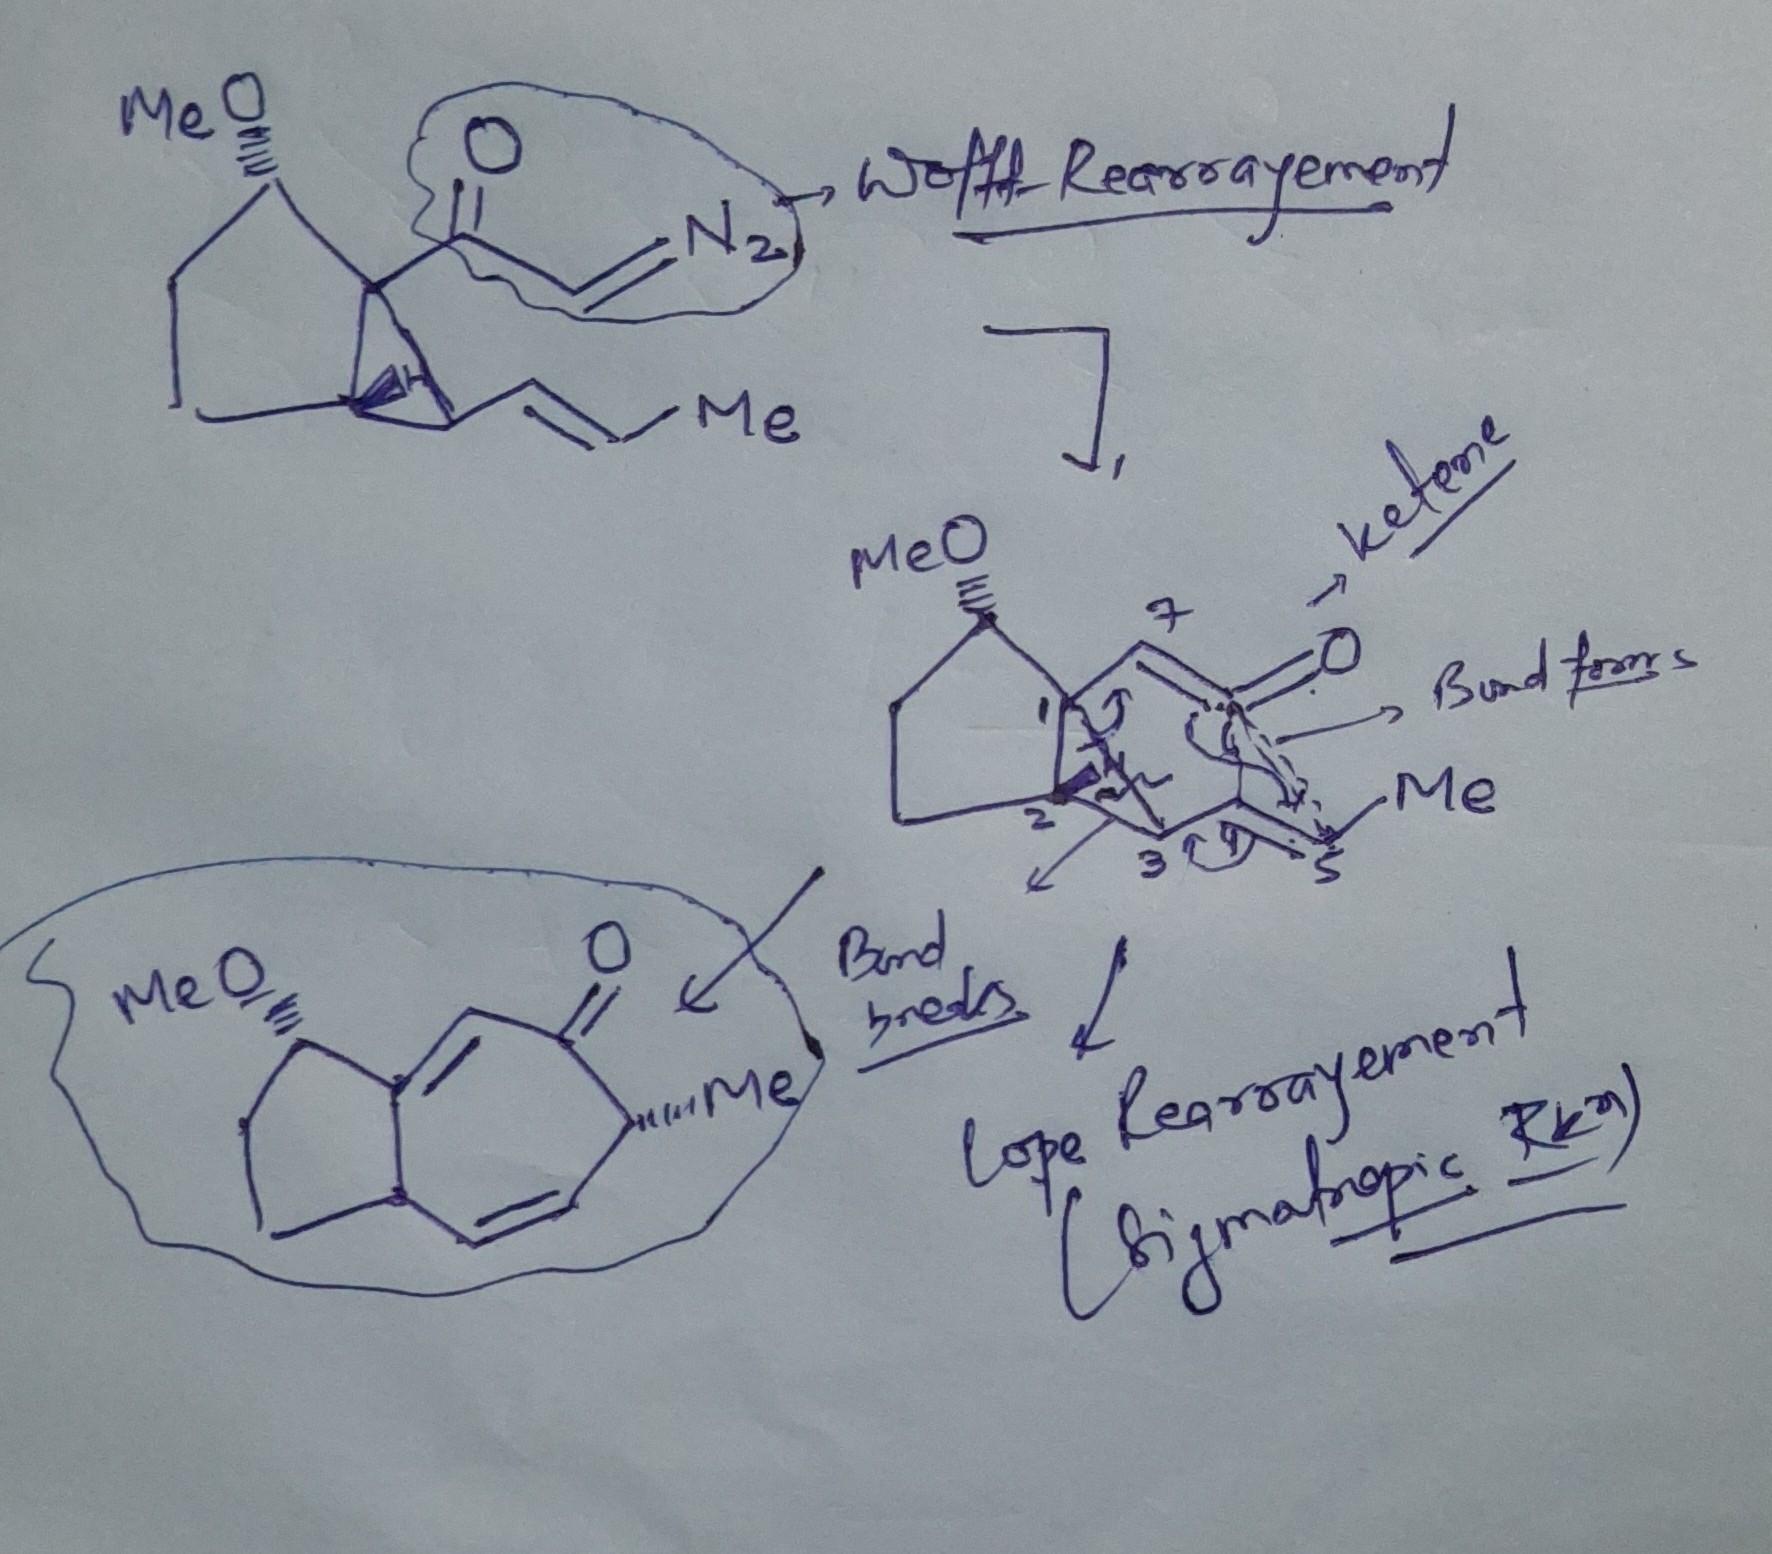 MeO
O
N2
Me
H
→ Wolff-Rearrayement
ketene
MeO
7
O
Bond forms
1
6
H
Me
2
3
4
5
Bond
breaks
MeO
O
Me
Cope Rearrayement
(Sigmatropic Rkn)